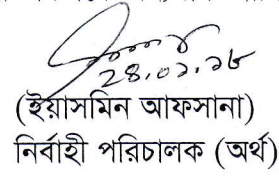 ২৪.০১.১৮
(ইয়াসমিন আফসানা)
নির্বাহী পরিচালক (অর্থ)